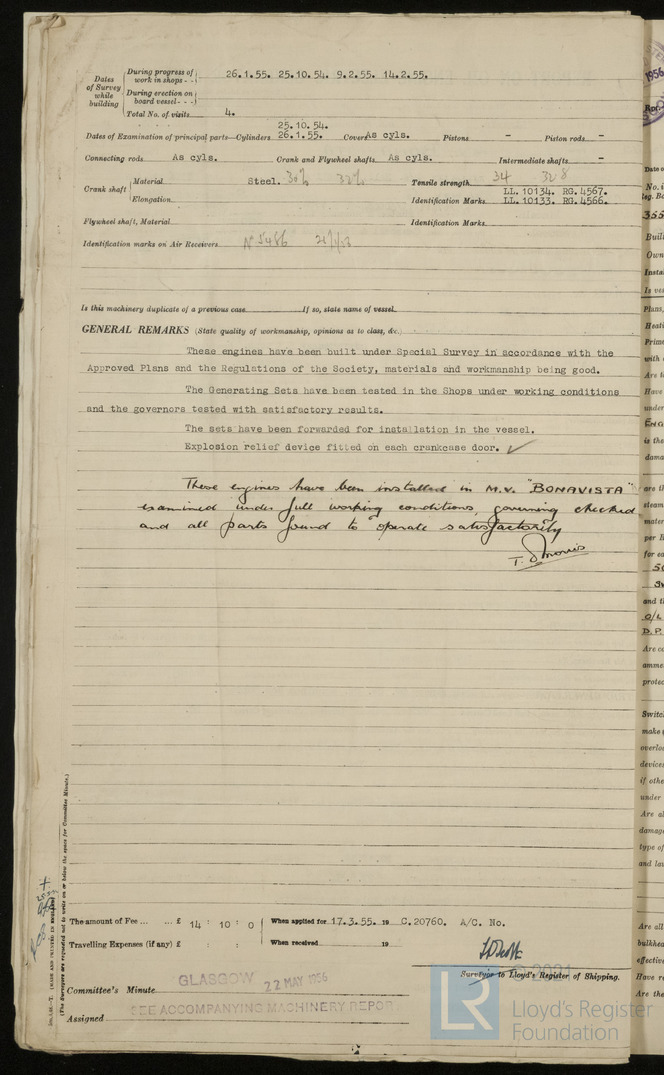 Dates of Survey while building
During progress of work in shops - - 26.1.55. 25.10.54. 9.2.55. 14.2.55.
During erection on board vessel - - -
Total No. of visits 4.
25.10.54.
Dates of Examination of principal parts—Cylinders 26.1.55. Covers As cyls. Pistons - Piston rods -
Connecting rods As cyls. Crank and Flywheel shafts As cyls. Intermediate shafts -
Crank shaft
Material Steel. 30% 32% Tensile strength 34 32.8
LL. 10134. RG. 4567.
Elongation Identification Marks LL. 10133. RG. 4566.
Flywheel shaft, Material Identification Marks
Identification marks on Air Receivers No 5486
Is this machinery duplicate of a previous case If so, state name of vessel
GENERAL REMARKS (State quality of workmanship, opinions as to class, &c.)
These engines have been built under Special Survey in accordance with the
Approved Plans and the Regulations of the Society, materials and workmanship being good.
The Generating Sets have been tested in the Shops under working conditions
and the governors tested with satisfactory results.
The sets have been forwarded for installation in the vessel.
Explosion relief device fitted on each crankcase door. ✓
These engines have been installed in M.V. "BONAVISTA"
examined under full working conditions, governing checked
and all parts found to operate satisfactorily
The amount of Fee ... ... £ 14 : 10 : 0 When applied for 17.3.55. 19 C.20760. A/C. No.
Travelling Expenses (if any) £ : : When received 19
Surveyor to Lloyd's Register of Shipping.
© 2021
GLASGOW 22 MAY 1956
Committee's Minute
SEE ACCOMPANYING MACHINERY REPOR
Assigned
(MADE AND PRINTED IN ENGLAND)
(The Surveyors are requested not to write on or below the space for Committee Minute.)
LR
Lloyd's Register
Foundation
1956